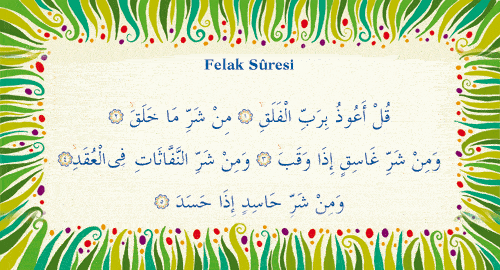 Felak Sûresi
قُلْ أَعُوذُ بِرَبِّ الْفَلَقِ ﴿١﴾ مِنْ شَرِّ مَا خَلَقَ ﴿٢﴾
وَمِنْ شَرِّ غَاسِقٍ إِذَا وَقَبَ ﴿٣﴾ وَمِنْ شَرِّ النَّفَّاثَاتِ فِى الْعُقَدِ ﴿٤﴾
وَمِنْ شَرِّ حَاسِدٍ إِذَا حَسَدَ ﴿٥﴾